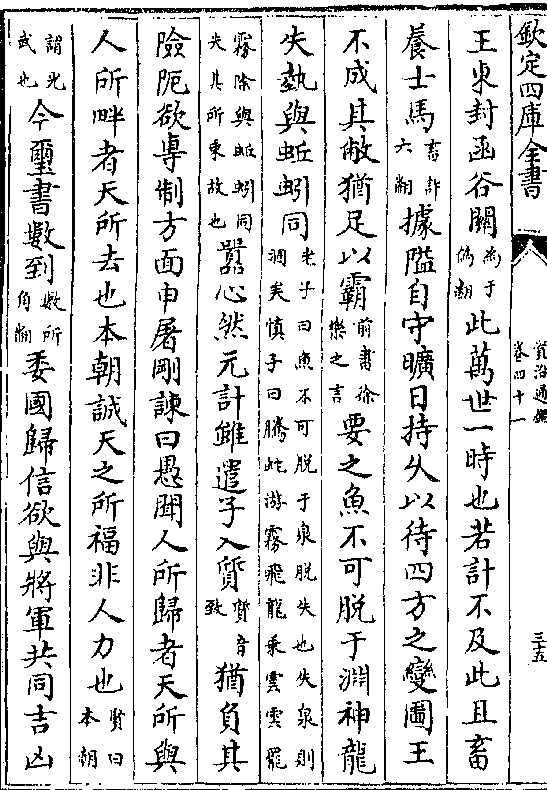 欽定四庫全書
資治通鑑
卷四十一
三十五
王東封函谷關為于偽翻此萬世一時也若計不及此且畜
養士馬畜許六翻據隘自守曠日持久以待四方之變圖王
不成其敝猶足以霸前書徐樂之言要之魚不可脱于淵神龍
失埶與蚯蚓同老子曰魚不可脱于泉脱失也失泉則涸矣慎子曰騰蛇游霧飛龍乘雲雲罷
霧除與蚯蚓同失其所乘故也囂心然元計雖遣子入質質音致猶負其
險阨欲専制方面申屠剛諫曰愚聞人所歸者天所與
人所畔者天所去也本朝誠天之所福非人力也賢曰本朝
謂光武也今璽書數到數所角翻委國歸信欲與將軍共同吉凶